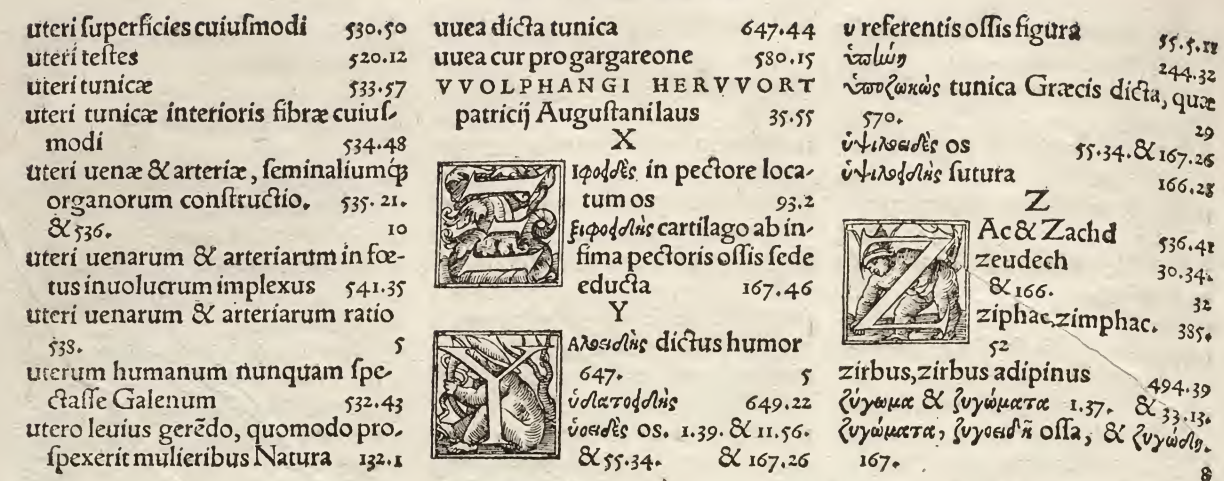 uteri ſuperficies cuiuſmodi 530.50
uteri teſtes 520.12
uteri tunicæ 533.57
uteri tunicæ interioris fibræ cuiuſ-
modi 534.48
uteri uenæ & arteriæ, ſeminaliumq́;
organorum conſtructio. 535.21.
& 536. 10
uteri uenarum & arteriarum in fœ-
tus inuolucrum implexus 541.35
uteri uenarum & arteriarum ratio
538. 5
uterum humanum nunquam ſpe-
ctaſſe Galenum 532.43
utero leuius gerẽdo, quomodo pro-
ſpexerit mulieribus Natura 132.1
uuea dicta tunica 647.44
uuea cur pro gargareone 580.15
VVOLPHANGI HERVVORT
patricij Auguſtani laus 35.55
X
Ξιφοειδὲς in pectore loca-
tum os 93.2
ξιφοειδὴς cartilago ab in-
fima pectoris oſſis ſede
educta 167.46
Y
Υαλοειδὴς dictus humor
647. 5
ὑδατοειδὴς 649.22
ὑοειδὲς os. 1.39. & 11.56.
& 55.34. & 167.26
υ referentis oſſis figura 55.5.11
244.32
tunica Græcis dicta, quæ
570. 29
ὑψιλοειδὲς os 55.34. & 167.26
ὑψιλοειδὴς ſutura 166.28
Z
ZAc & Zachd 536.41
zeudech 30.34.
& 166. 32
ziphac, zimphac. 385.
52
zirbus, zirbus adipinus 494.39
ζύγωμα & ζυγώματα 1.37. & 33.13.
ζυγώματα, ζυγοειδῆ oſſa, & ζυγώδη.
167. 8